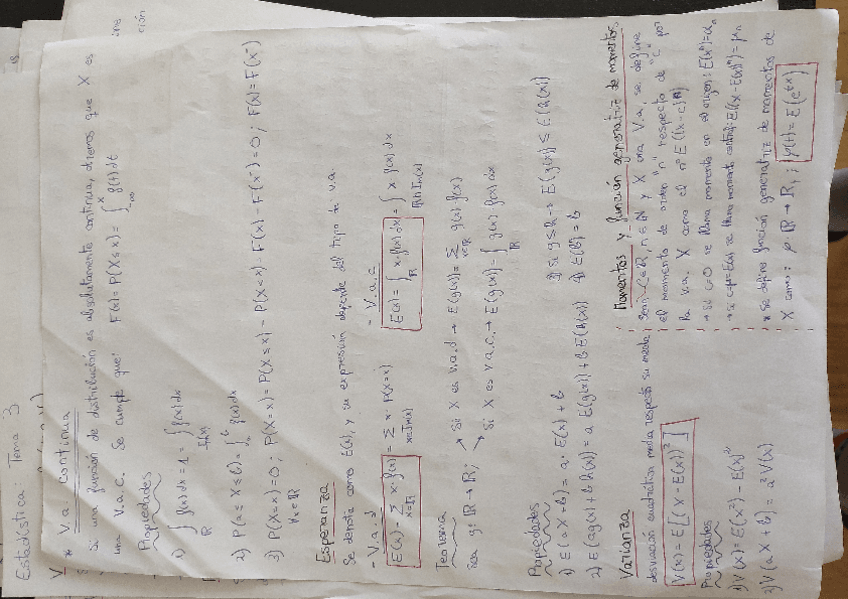 Estadística: Tema 3
* V.a. continua
Si una función de distribución es absolutamente continua, diremos que X es
una V.a.c. Se cumple que: F(x) = P(X ≤ x) = ∫_{-∞}^{x} f(t) dt
Propiedades
1) ∫_ℝ f(x) dx = 1 = ∫_{Im(x)} f(x) dx
2) P(a ≤ X ≤ b) = ∫_a^b f(x) dx
3) P(X=x) = 0 ; P(X=x) = P(X ≤ x) - P(X < x) = F(x) - F(x⁻) = 0 ; F(x) = F(x⁻)
∀x ∈ ℝ
Esperanza
Se denota como E(x), y su expresión depende del tipo de v.a.
- V.a.d
E(x) = Σ_{x∈ℝ} x · f(x) = Σ_{x∈Im(x)} x · P(X=x)
- V.a.c
E(x) = ∫_ℝ x · f(x) dx = ∫_{Im(x)} x · f(x) dx
Teorema
Sea g: ℝ → ℝ ;
→ Si X es v.a.d → E(g(x)) = Σ_{x∈ℝ} g(x) f(x)
→ Si X es v.a.c. → E(g(x)) = ∫_ℝ g(x) f(x) dx
Propiedades
1) E(aX + b) = a · E(x) + b
2) E(ag(x) + b h(x)) = a E(g(x)) + b E(h(x))
3) Si g ≤ h → E(g(x)) ≤ E(h(x))
4) E(b) = b
Varianza
desviación cuadrática media respecto su media
V(x) = E[(X - E(x))²]
Propiedades
1) V(x) = E(x²) - E(x)²
2) V(aX + b) = a² V(x)
Momentos y función generatriz de momentos.
Sean C ∈ ℝ, n ∈ ℕ y X una V.a. se define
el momento de orden "n" respecto de "c" por
la v.a. X como el nº E((x-c)ⁿ)
→ Si c=0 se llama momento en el origen: E(xⁿ) = αₙ
→ Si c=μ=E(x) se llama momento central: E((x-E(x))ⁿ) = μₙ
* Se define función generatriz de momentos de
X como: φ: ℝ → ℝ ; φ(t) = E(e^{tx})